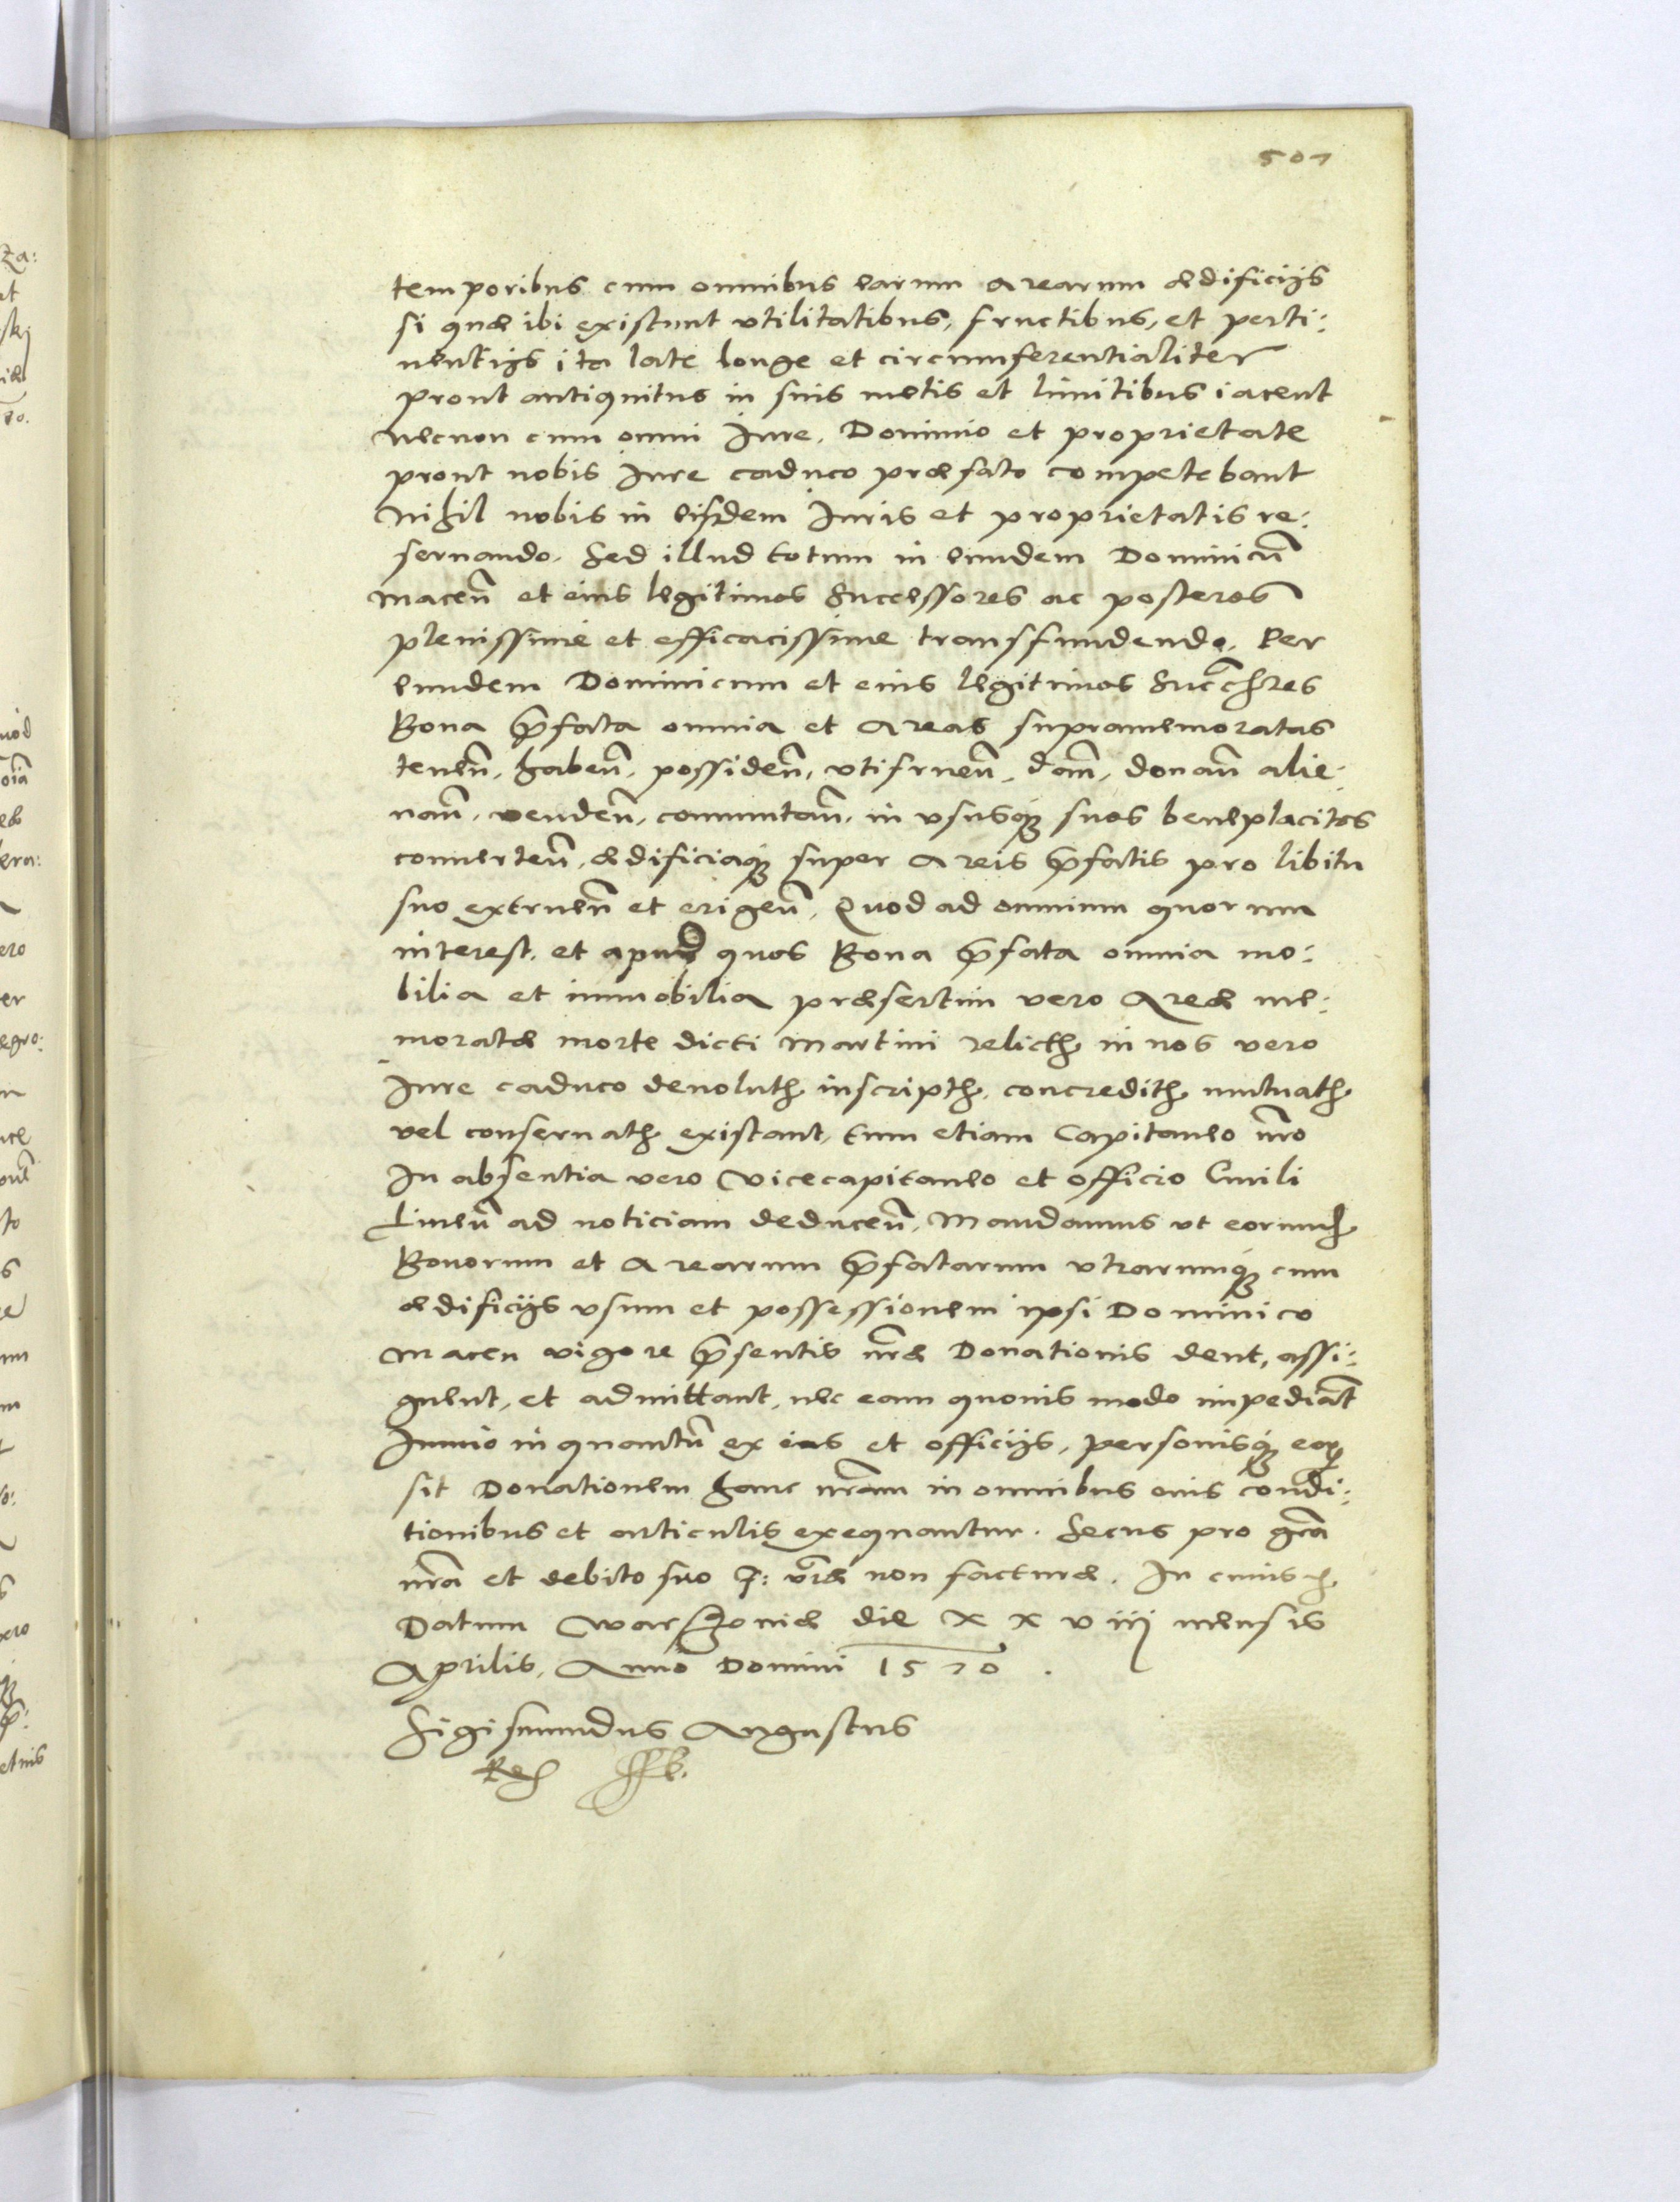 507
temporibus cum omnibus earum arearum ædificijs
si quæ ibi existunt vtilitatibus, fructibus, et perti:
nentijs ita late longe et circumferentialiter
prout antiquitus in suis metis et limitibus iacent
necnon cum omni Iure, Dominio et proprietate
prout nobis Iure caduco præfato competebant
Nihil nobis in eisdem Iuris et proprietatis re:
seruando. Sed illud totum in eundem Dominicũ
Maceñ et eius legitimos Successores ac posteros
plenissime et efficacissime transfundendo. Per
eundem Dominicum et eius legitimos Succes̃res
Bona p̃fata omnia et Areas supramemoratas
teneñ, habeñ, possideñ, vtifrueñ, dañ, donañ alie:
nañ, vendeñ, commutañ, in vsusq́ꝫ suos beneplacitos
conuerteñ, ædificiaq́ꝫ super Areis p̃fatis pro libitu
suo extrueñ et erigeñ, Quod ad omnium quorum
interest, et apud quos Bona p̃fata omnia mo:
bilia et immobilia præsertim vero Areæ me:
moratæ morte dicti Martini relictȝ in nos vero
Iure caduco deuolutȝ inscriptȝ, concreditȝ mutuatȝ
vel conseruatȝ existant, tum etiam Capitaneo nr̃o
In absentia vero Vicecapitaneo et officio Ciuili
ad noticiam deduceñ, Mandamus vt eorumȝ
Bonorum et Arearum p̃fatarum vtrarumq́ꝫ cum
ædificijs vsum et possessionem ipsi Dominico
Maceu vigore p̃sentis nr̃æ Donationis dent, assi:
gnent, et admittant, nec eam quouis modo impediãt
Immo in quantũ ex eius et officijs, personisq́ꝫ eoꝝ
sit Donationem hanc nr̃am in omnibus eius condi:
tionibus et articulis exequantur. Secus pro gr̃a
nr̃a et debito suo F: vr̃æ non facturæ. In cuiusȝ
Datum Warszouiæ die XXviij mensis
Aprilis, Anno Domini 1570.
Sigismundus Augustus
Rex ssb.